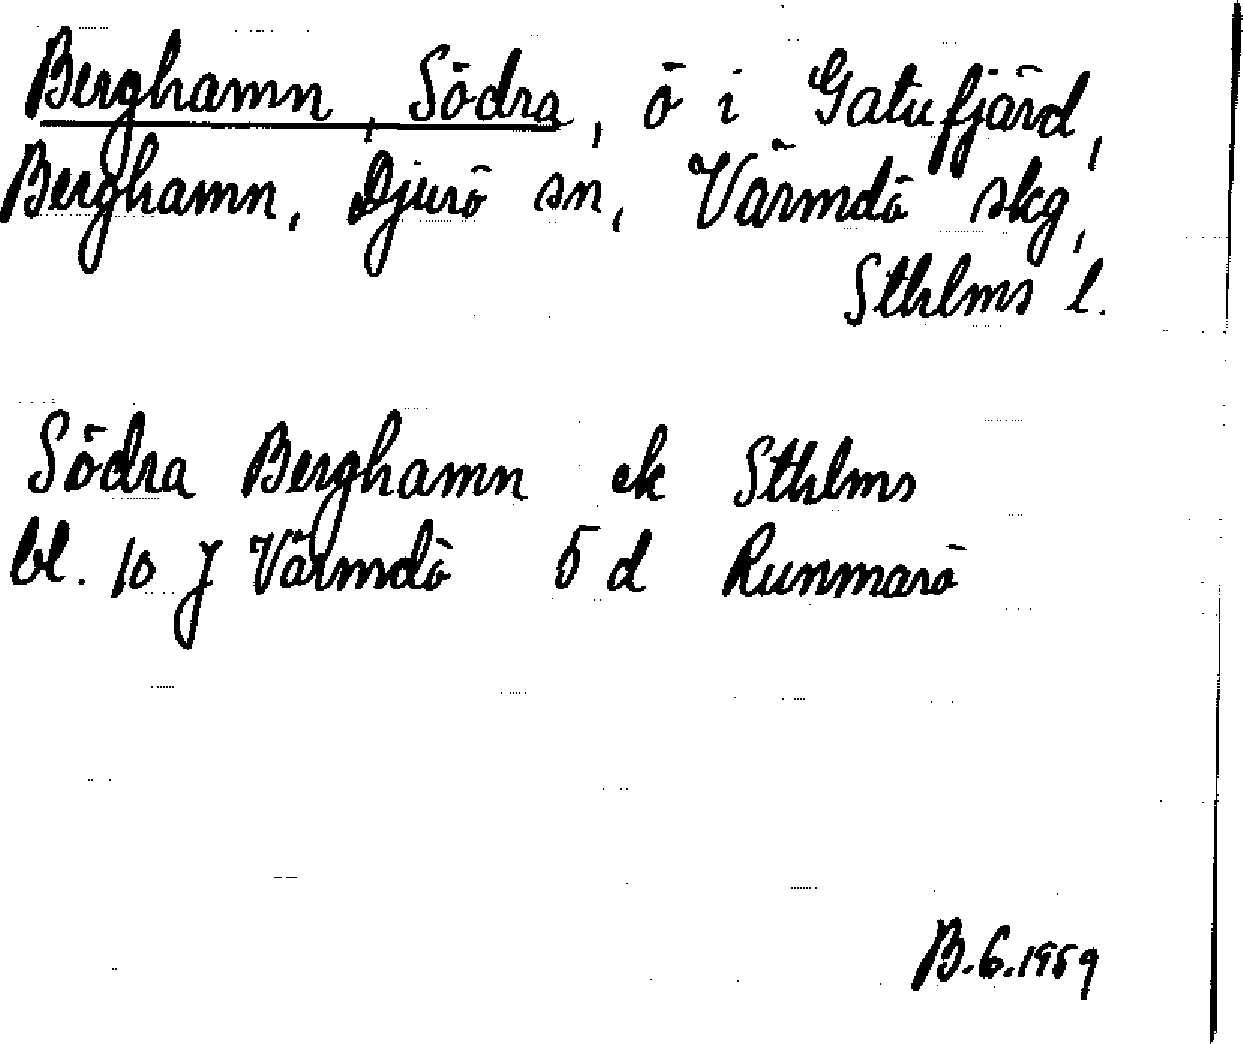 Berghamn, Södra, ö i Gatufjärd,
Berghamn, Djurö sn, Värmdö skg,
Sthlms l.
Södra Berghamn ek Sthlms
bl. 10 J Värmdö 5 d Runmarö
B.G.1959